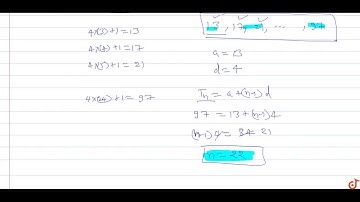 4x(3)+1=13
4x(4)+1=17
4x(5)+1=21
4x(24)+1=97
13, 17, 21, ..., 97
a=13
d=4
Tn = a+(n-1)d
97 = 13+(n-1)4
(n-1)4 = 84 21
n=22